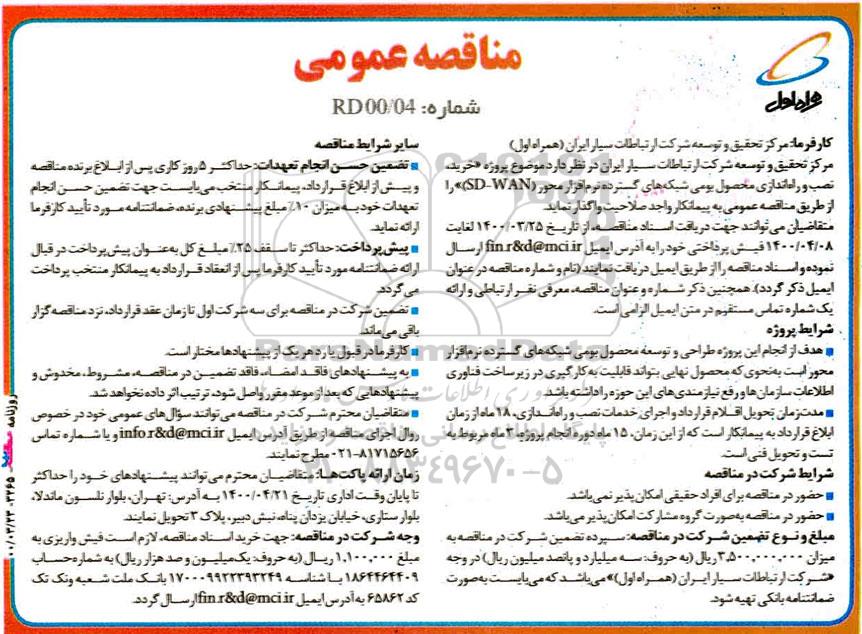 مناقصه عمومی
شماره: RD00/04
همراه اول
کارفرما: مرکز تحقیق و توسعه شرکت ارتباطات سیار ایران (همراه اول)
مرکز تحقیق و توسعه شرکت ارتباطات سیار ایران در نظر دارد موضوع پروژه «خرید،
نصب و راه‌اندازی محصول بومی شبکه‌های گسترده نرم‌افزار محور (SD-WAN)» را
از طریق مناقصه عمومی به پیمانکار واجد صلاحیت واگذار نماید.
متقاضیان می‌توانند جهت دریافت اسناد مناقصه، از تاریخ ۱۴۰۰/۰۳/۲۵ لغایت
۱۴۰۰/۰۴/۰۸ فیش پرداختی خود را به آدرس ایمیل fin.r&d@mci.ir ارسال
نموده و اسناد مناقصه را از طریق ایمیل دریافت نمایند (نام و شماره مناقصه در عنوان
ایمیل ذکر گردد). همچنین ذکر شماره و عنوان مناقصه، معرفی نفر ارتباطی و ارائه
یک شماره تماس مستقیم در متن ایمیل الزامی است.
شرایط پروژه
هدف از انجام این پروژه طراحی و توسعه محصول بومی شبکه‌های گسترده نرم‌افزار
محور است به‌نحوی که محصول نهایی بتواند قابلیت به کارگیری در زیرساخت فناوری
اطلاعات سازمان‌ها و رفع نیازمندی‌های این حوزه را داشته باشد.
مدت زمان تحویل اقلام قرارداد و اجرای خدمات نصب و راه‌اندازی، ۱۸ ماه از زمان
ابلاغ قرارداد به پیمانکار است که از این زمان، ۱۵ ماه دوره انجام پروژه و ۳ ماه مربوط به
تست و تحویل فنی است.
شرایط شرکت در مناقصه
حضور در مناقصه برای افراد حقیقی امکان‌پذیر نمی‌باشد.
حضور در مناقصه به‌صورت گروه مشارکت امکان‌پذیر می‌باشد.
مبلغ و نوع تضمین شرکت در مناقصه: سپرده تضمین شرکت در مناقصه به
میزان ۳,۵۰۰,۰۰۰,۰۰۰ ریال (به حروف: سه میلیارد و پانصد میلیون ریال) در وجه
«شرکت ارتباطات سیار ایران (همراه اول)» می‌باشد که می‌بایست به‌صورت
ضمانتنامه بانکی تهیه شود.
سایر شرایط مناقصه
تضمین حسن انجام تعهدات: حداکثر ۵ روز کاری پس از ابلاغ برنده مناقصه
و پیش از ابلاغ قرارداد، پیمانکار منتخب می‌بایست جهت تضمین حسن انجام
تعهدات خود به میزان ۱۰٪ مبلغ پیشنهادی برنده، ضمانتنامه مورد تأیید کارفرما
ارائه نماید.
پیش‌پرداخت: حداکثر تا سقف ۲۵٪ مبلغ کل به‌عنوان پیش‌پرداخت در قبال
ارائه ضمانتنامه مورد تأیید کارفرما پس از انعقاد قرارداد به پیمانکار منتخب پرداخت
می‌گردد.
تضمین شرکت در مناقصه برای سه شرکت اول تا زمان عقد قرارداد، نزد مناقصه‌گزار
باقی می‌ماند.
کارفرما در قبول یا رد هر یک از پیشنهادها مختار است.
به پیشنهادهای فاقد امضاء، فاقد تضمین در مناقصه، مشروط، مخدوش و
پیشنهادهایی که بعد از موعد مقرر واصل شود، ترتیب اثر داده نخواهد شد.
متقاضیان محترم شرکت در مناقصه می‌توانند سؤال‌های عمومی خود در خصوص
روال اجرای مناقصه از طریق آدرس ایمیل info.r&d@mci.ir و یا شماره تماس
۰۲۱-۸۱۷۱۵۶۵۶ مطرح نمایند.
زمان ارائه پاکت‌ها: متقاضیان محترم می‌توانند پیشنهادهای خود را حداکثر
تا پایان وقت اداری تاریخ ۱۴۰۰/۰۴/۲۱ به آدرس: تهران، بلوار نلسون ماندلا،
بلوار ستاری، خیابان یزدان پناه، نبش دبیر، پلاک ۳ تحویل نمایند.
وجه شرکت در مناقصه: جهت خرید اسناد مناقصه، لازم است فیش واریزی به
مبلغ ۱,۱۰۰,۰۰۰ ریال (به حروف: یک‌میلیون و صد هزار ریال) به شماره حساب
۱۸۶۴۴۶۴۴۰۹ با شناسه ۱۷۰۰۰۹۹۲۲۳۹۳۲۴۹ بانک ملت شعبه ونک تک
کد ۶۵۸۶۲ به آدرس ایمیل fin.r&d@mci.ir ارسال گردد.
ParsNamadData
پایگاه اطلاع رسانی مناقصه و مزایده
۰۲۱-۸۸۳۴۹۶۷۰-۵
روزنامه ۳۲۶۵ - ۰۰/۰۳/۲۳